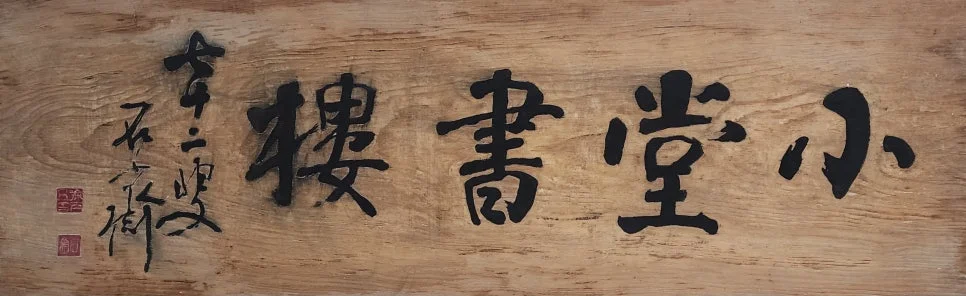 小堂書樓
七十二叟
石齋